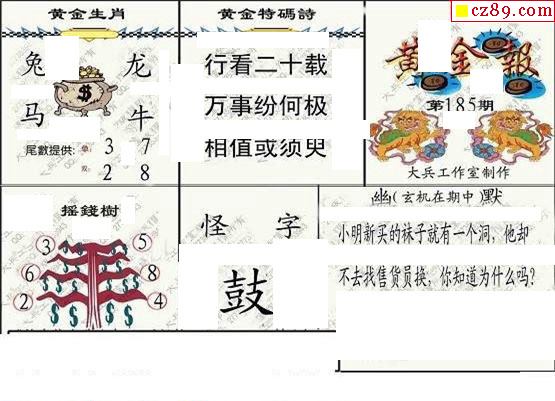 cz89.com
黄金生肖
兔 龙
马 牛
$
尾數提供: 单: 3 7
双: 2 8
黄金特碼詩
行看二十载
万事纷何极
相值或须臾
黄金報
第185期
大兵工作室制作
摇錢樹
3 5
6 8
2 4
怪 字
鼓
幽(玄机在期中)默
小明新买的袜子就有一个洞,他却
不去找售货员换,你知道为什么吗?